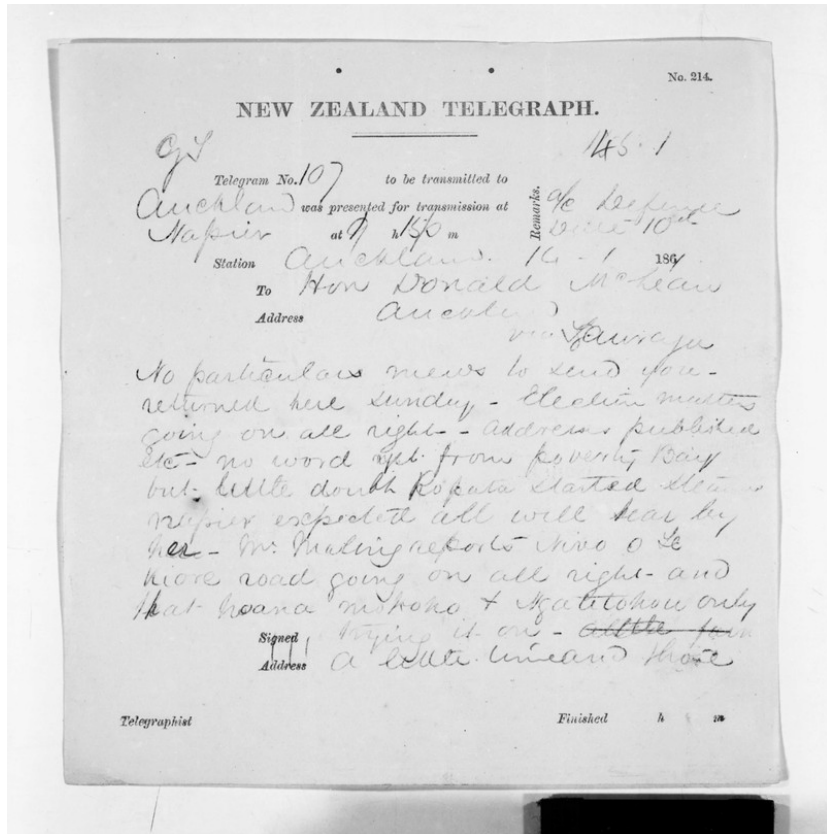 No. 214.
NEW ZEALAND TELEGRAPH.
145.1
Telegram No. 107 to be transmitted to
Auckland was presented for transmission at
Napier at 9 h 150 m
Remarks. a/c Defence
Station Auckland. 14 - 1 1867
To Hon Donald McLean
Address Auckland
via Tauranga
No particular news to send you -
returned here Sunday - Election matters
going on all right - Addresses published
etc - no word yet from Poverty Bay
but little doubt Ropata started Steamer
Napier expected all will hear by
her - Mr. Maling reports Nivo O Te
Kiore road going on all right - and
that Hoana Mokoho + Ngatitohou only
Signed trying it on -
Address A little time and those
Telegraphist Finished h m